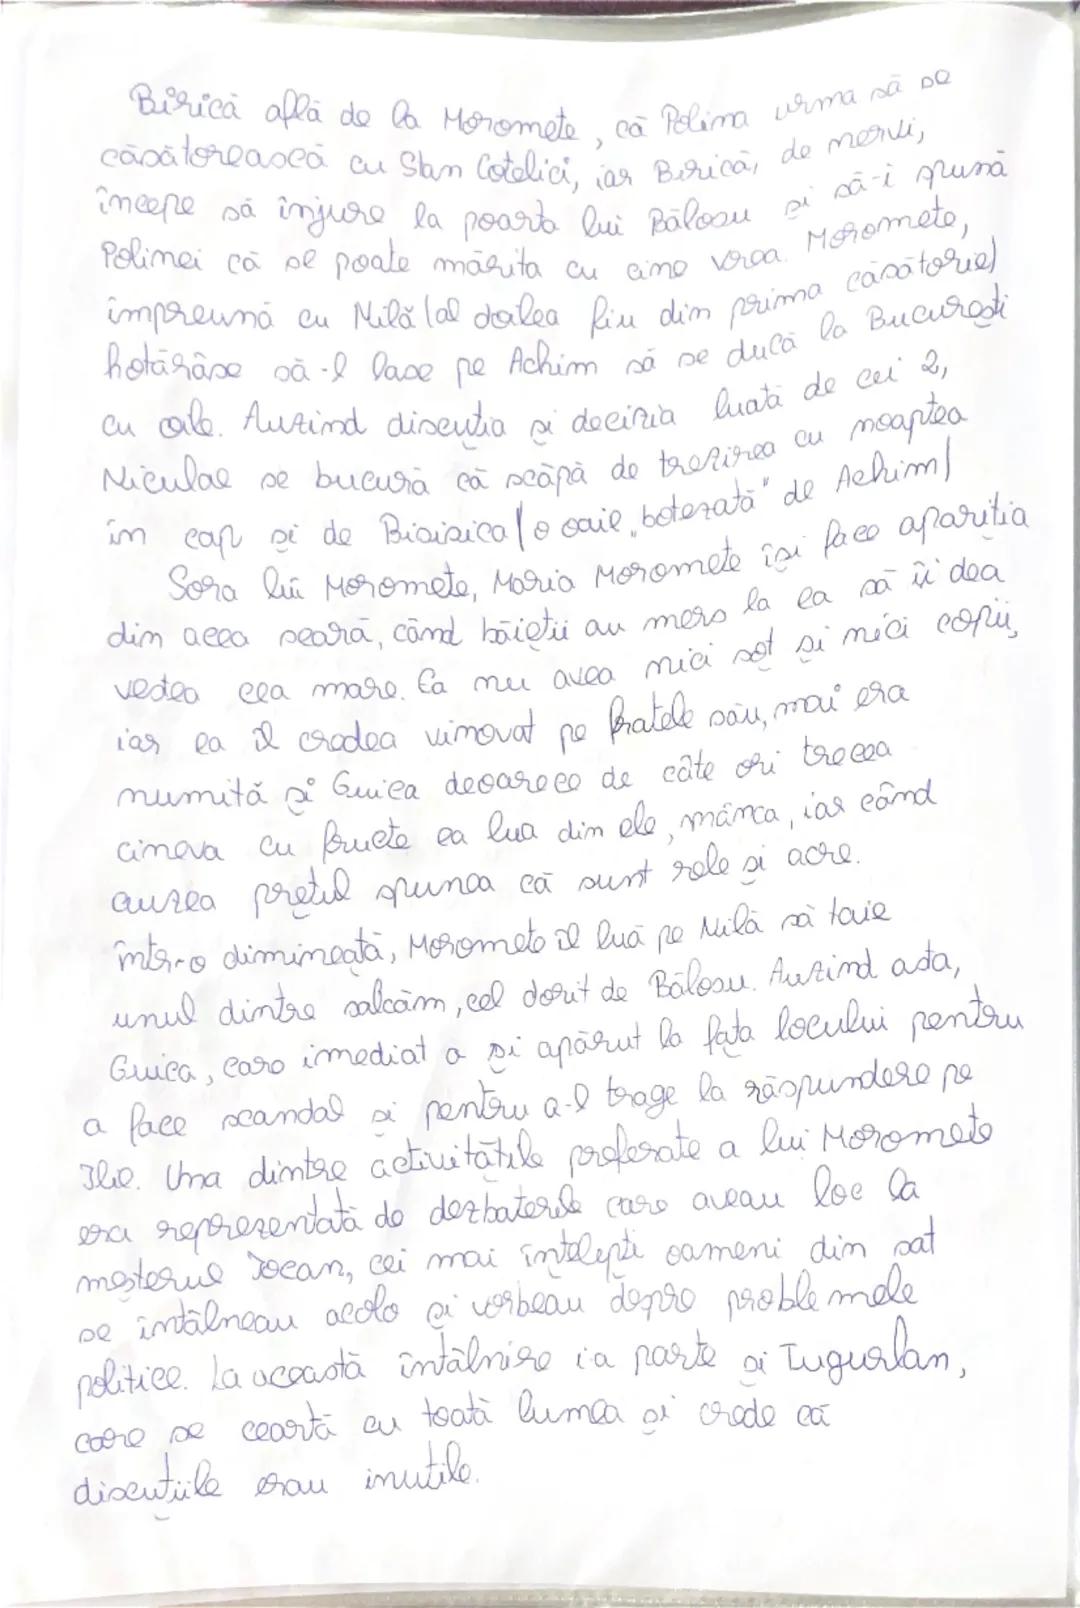 Birică află de la Moromete, că Polina urma să se
căsătorească cu Stan Cotelici, iar Birică, de nervi,
începe să înjure la poarta lui Bălosu și să-i spună
Polinei că se poate mărita cu cine vrea. Moromete,
împreună cu Nilă (al doilea fiu din prima căsătorie)
hotărăse să-l lase pe Achim să se ducă la București
cu oile. Auzind discuția și decizia luată de cei 2,
Niculae se bucură că scăpă de trezirea cu noaptea
în cap și de Bisisica (o oaie „botezată" de Achim)
Sora lui Moromete, Maria Moromete își face apariția
din acea seară, când băieții au mers la ea să îi dea
vestea cea mare. Ea nu avea nici soț și nici copii,
iar ea îl credea vinovat pe fratele său, mai era
numită și Guica deoarece de câte ori trecea
cineva cu fructe ea lua din ele, mânca, iar când
auzea prețul spunea că sunt rele și acre.
într-o dimineață, Moromete îl luă pe Nilă să taie
unul dintre salcâm, cel dorit de Bălosu. Auzind asta,
Guica, care imediat a și apărut la fața locului pentru
a face scandal și pentru a-l trage la răspundere pe
Ilie. Una dintre activitățile preferate a lui Moromete
era reprezentată de dezbaterile care aveau loc la
meșterul Iocan, cei mai înțelepți oameni din sat
se întâlneau acolo și vorbeau despre problemele
politice. La această întâlnire ia parte și Țugurlan,
care se ceartă cu toată lumea și crede că
discuțiile erau inutile.